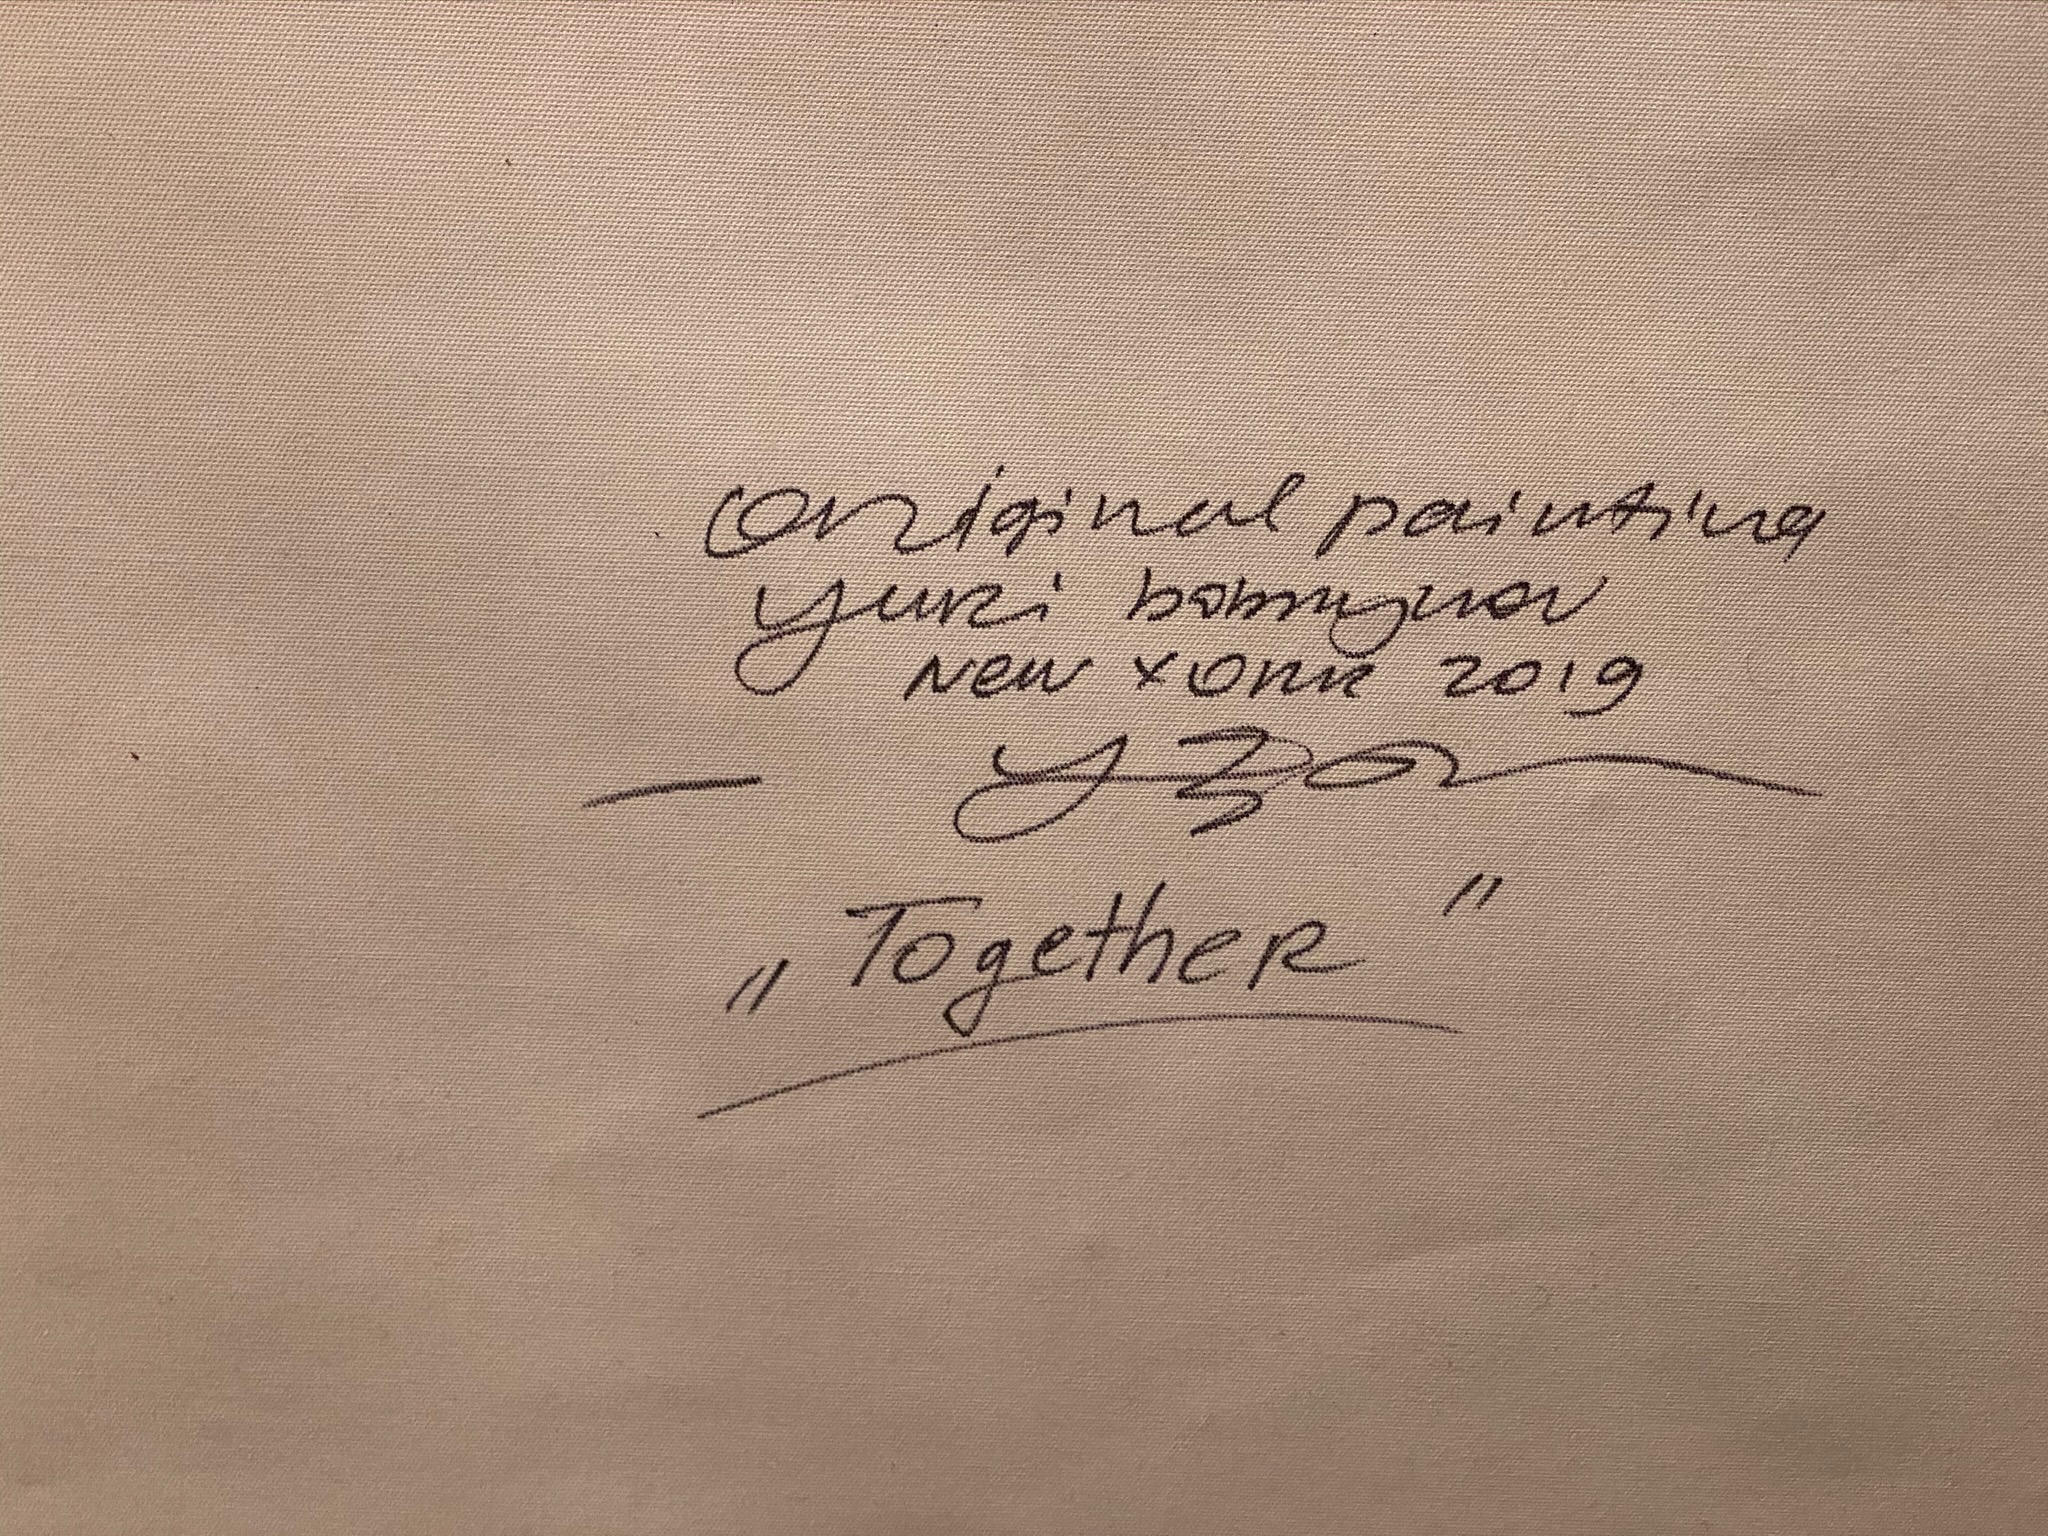 Original painting
Yuri Bobrynov
New York 2019
„Together"